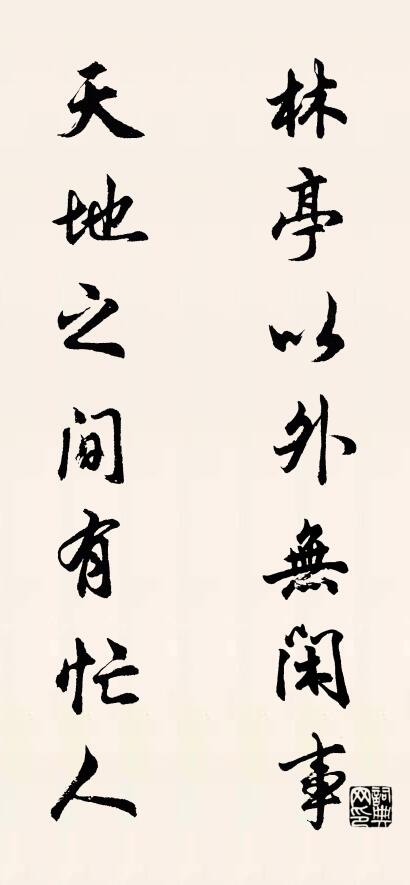 林亭以外無閑事
天地之间有忙人
詞典网印